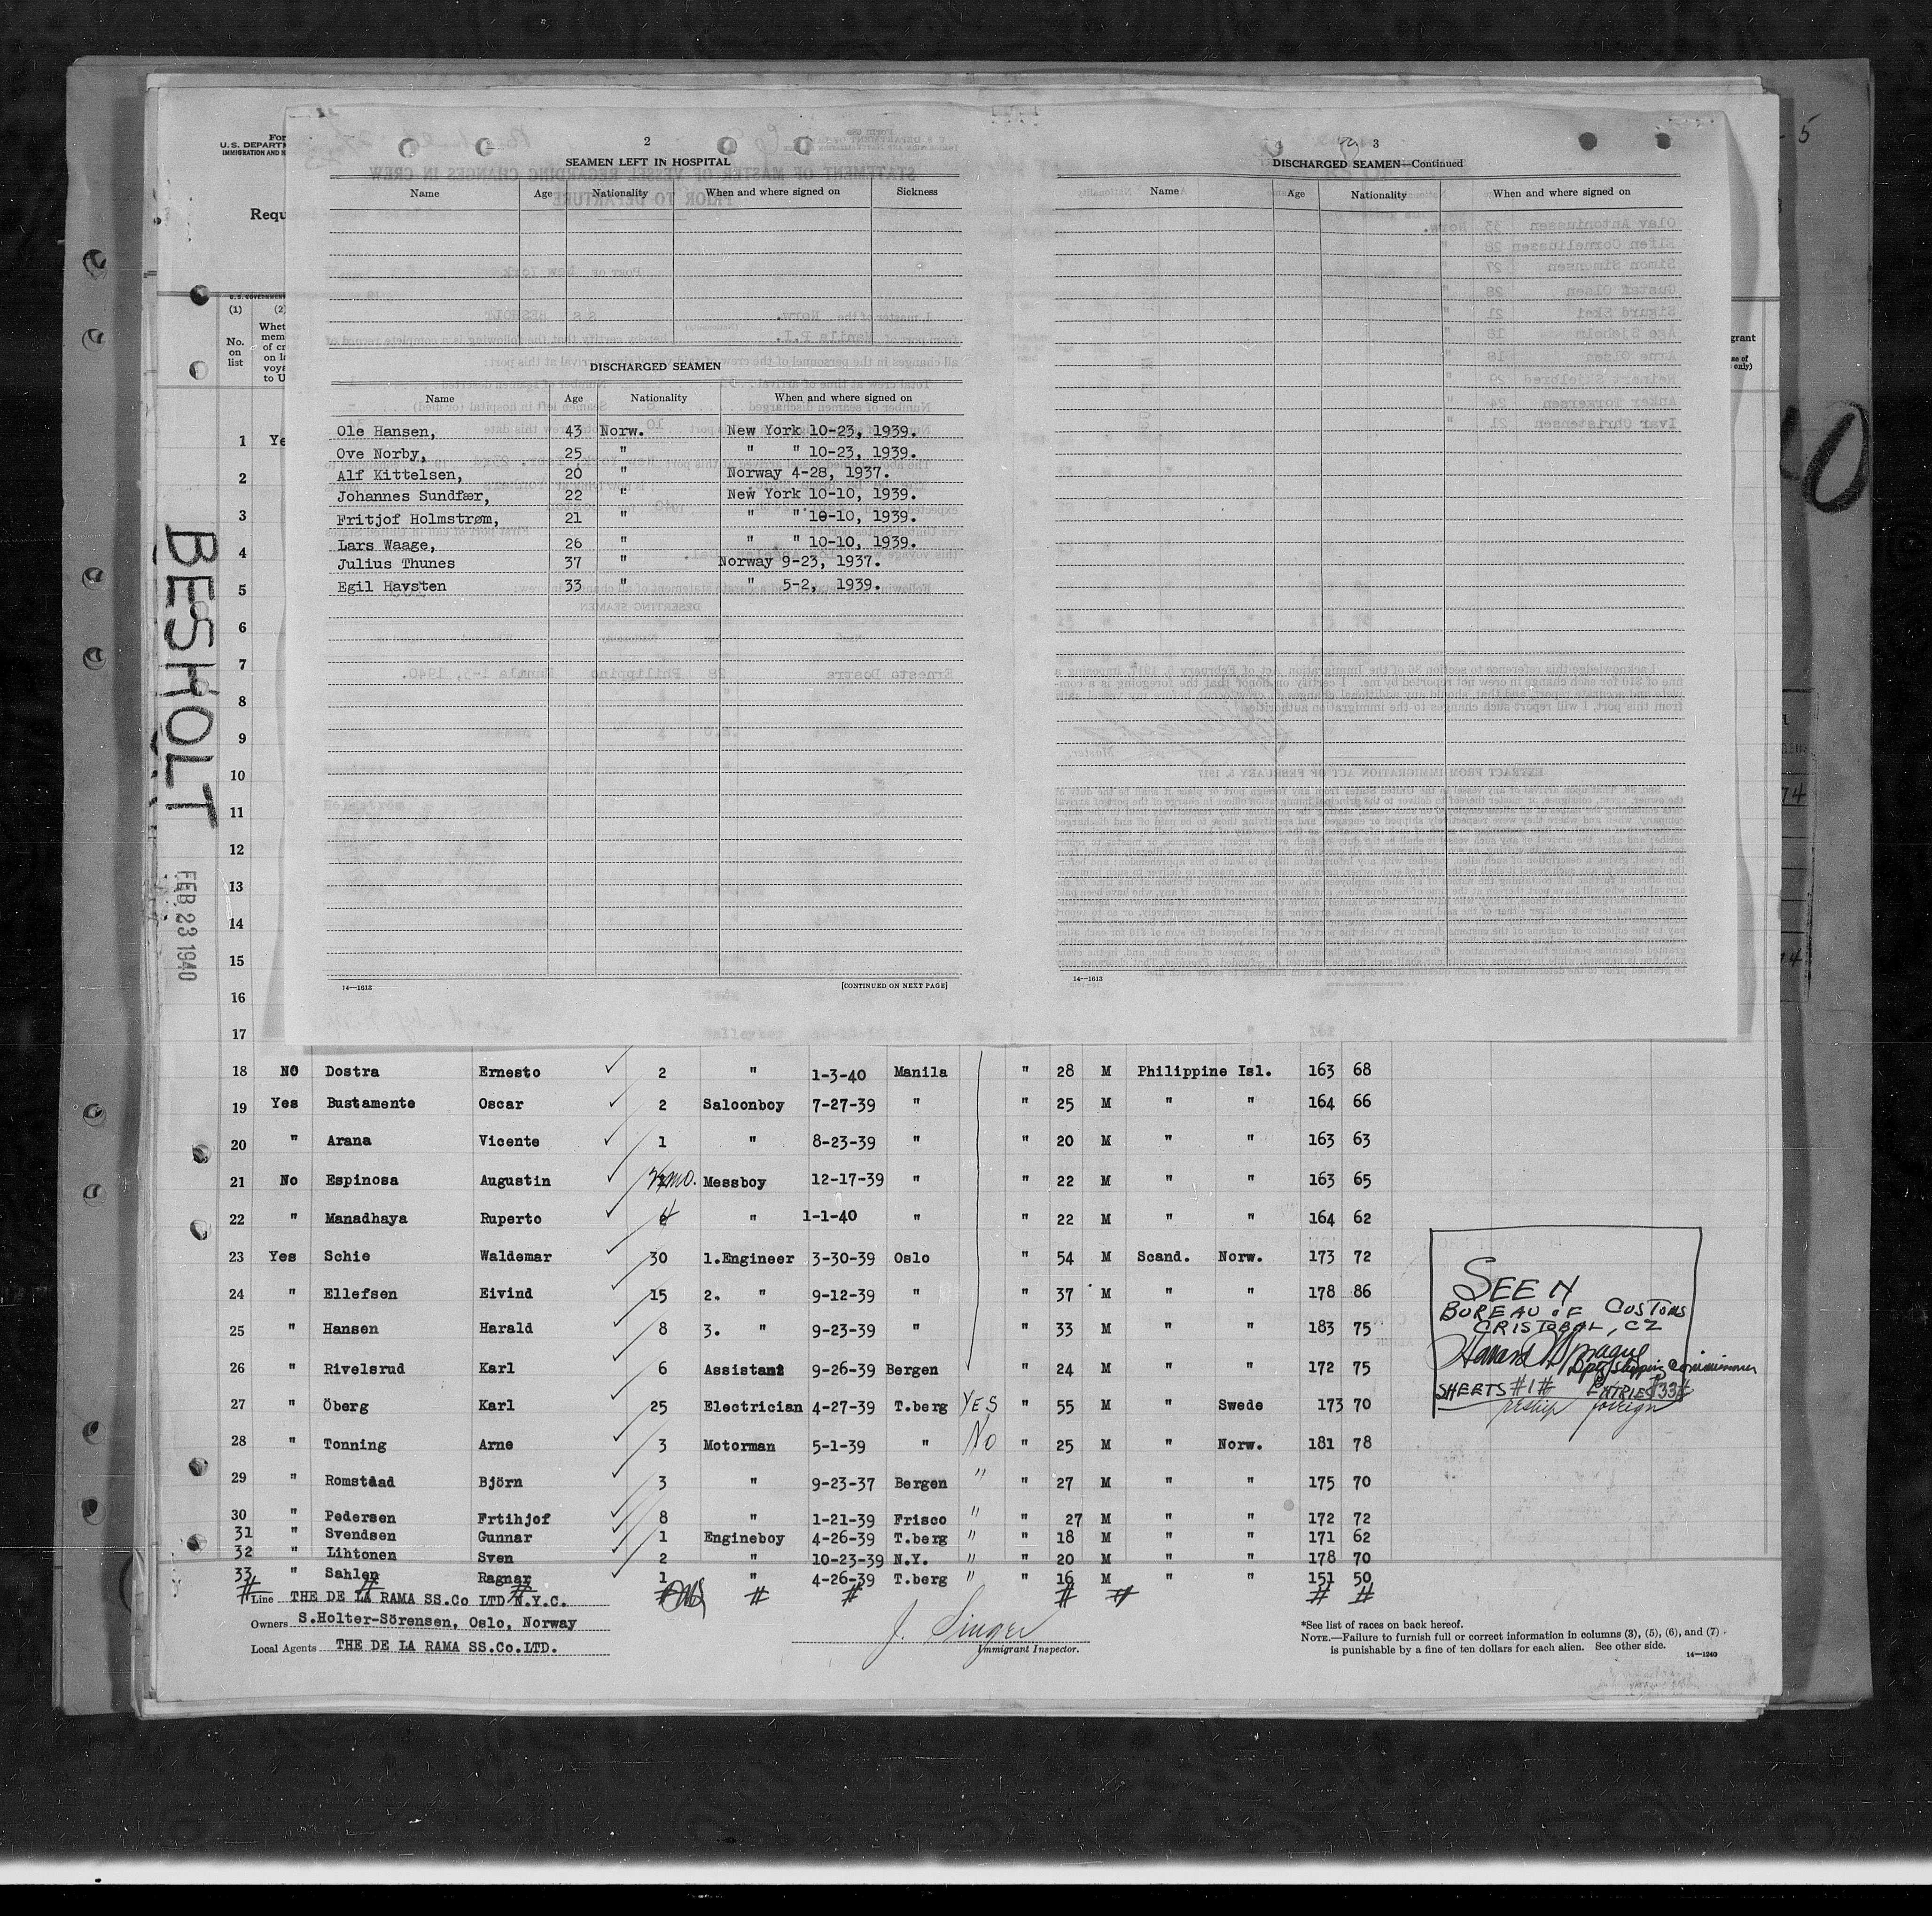 For
U.S. DEPARTM
IMMIGRATION AND N
Requ
2
SEAMEN LEFT IN HOSPITAL
Name Age Nationality When and where signed on Sickness
DISCHARGED SEAMEN
Name Age Nationality When and where signed on
Ole Hansen, 43 Norw. New York 10-23, 1939.
Ove Norby, 25 " " " 10-23, 1939.
Alf Kittelsen, 20 " Norway 4-28, 1937.
Johannes Sundfær, 22 " New York 10-10, 1939.
Fritjof Holmstrøm, 21 " " " 10-10, 1939.
Lars Waage, 26 " " " 10-10, 1939.
Julius Thunes 37 " Norway 9-23, 1937.
Egil Havsten 33 " " 5-2, 1939.
14—1613 [CONTINUED ON NEXT PAGE]
3
DISCHARGED SEAMEN—Continued
Name Age Nationality When and where signed on
14—1613
5
U.S. GOVERNMENT
(1) (2)
No. on list
Whet
mem
of cr
on la
voya
to U
grant
only)
74
BESHOLT
FEB 23 1940
1 Ye
2
3
4
5
6
7
8
9
10
11
12
13
14
15
16
17
18 NO Dostra Ernesto ✓ 2 " 1-3-40 Manila " 28 M Philippine Isl. 163 68
19 Yes Bustamente Oscar ✓ 2 Saloonboy 7-27-39 " " 25 M " " 164 66
20 " Arana Vicente ✓ 1 " 8-23-39 " " 20 M " " 163 63
21 No Espinosa Augustin ✓ mo. Messboy 12-17-39 " " 22 M " " 163 65
22 " Manadhaya Ruperto ✓ " 1-1-40 " " 22 M " " 164 62
23 Yes Schie Waldemar ✓ 30 1.Engineer 3-30-39 Oslo " 54 M Scand. Norw. 173 72
24 " Ellefsen Eivind ✓ 15 2. " 9-12-39 " " 37 M " " 178 86
25 " Hansen Harald ✓ 8 3. " 9-23-39 " " 33 M " " 183 75
26 " Rivelsrud Karl ✓ 6 Assistant 9-26-39 Bergen " 24 M " " 172 75
27 " Öberg Karl ✓ 25 Electrician 4-27-39 T.berg YES " 55 M " Swede 173 70
28 " Tonning Arne ✓ 3 Motorman 5-1-39 " No " 25 M " Norw. 181 78
29 " Romstaad Björn ✓ 3 " 9-23-37 Bergen " " 27 M " " 175 70
30 " Pedersen Frtihjof ✓ 8 " 1-21-39 Frisco " " 27 M " " 172 72
31 " Svendsen Gunnar ✓ 1 Engineboy 4-26-39 T.berg " " 18 M " " 171 62
32 " Lihtonen Sven ✓ 2 " 10-23-39 N.Y. " " 20 M " " 178 70
33 " Sahlen Ragnar ✓ 1 " 4-26-39 T.berg " " 16 M " " 151 50
SEEN
BUREAU OF CUSTOMS
CRISTOBAL, CZ
Dpty Shipping Commissioner
SHEETS #1# ENTRIES #33#
foreign
Line THE DE LA RAMA SS.Co LTD N.Y.C.
Owners S.Holter-Sörensen, Oslo, Norway
Local Agents THE DE LA RAMA SS.Co.LTD.
J. Singer
Immigrant Inspector.
*See list of races on back hereof.
NOTE.—Failure to furnish full or correct information in columns (3), (5), (6), and (7)
is punishable by a fine of ten dollars for each alien. See other side.
14—1240